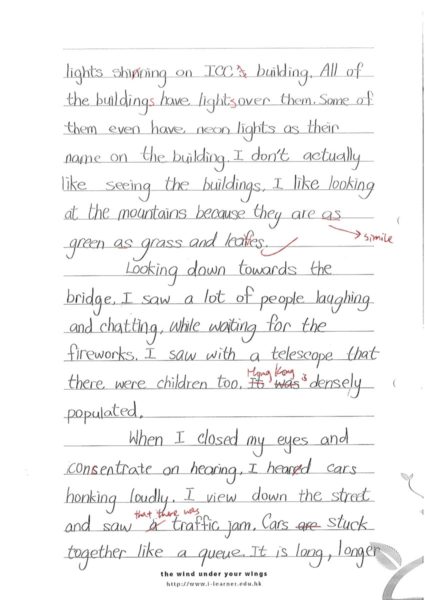 lights shinning on ICC's building. All of
the buildings have lights over them. Some of
them even have neon lights as their
name on the building. I don't actually
like seeing the buildings. I like looking
at the mountains because they are as
green as grass and leaves.
simile
Looking down towards the
bridge, I saw a lot of people laughing
and chatting, while waiting for the
fireworks. I saw with a telescope that
Hong Kong is
there were children too. It was densely
populated.
When I closed my eyes and
consentrate on hearing, I heared cars
honking loudly. I view down the street
that there was
and saw a traffic jam. Cars are stuck
together like a queue. It is long, longer
the wind under your wings
http://www.i-learner.edu.hk